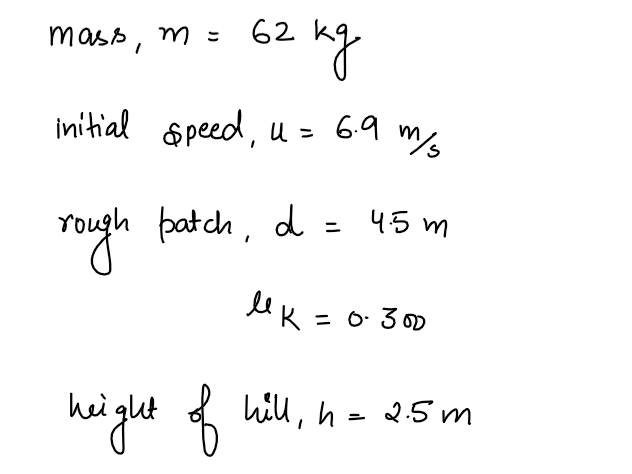 mass, m = 62 kg
initial speed, u = 6.9 m/s
rough patch, d = 4.5 m
μK = 0.300
height of hill, h = 2.5 m